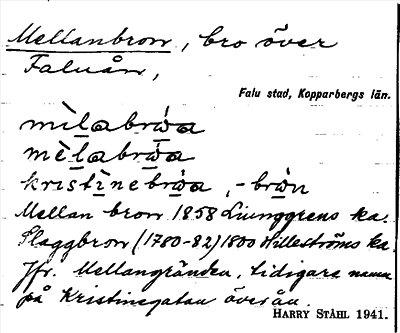 Mellanbron, bro över
Faluån,
Falu stad, Kopparbergs län.
mìlabrωa
mèlabrωa
kristìnebrωa, -brωn
Mellan bron 1858 Ljunggrens ka.
Slaggbron (1780-82) 1800 Hilleströms ka.
Jfr. Mellangränden, tidigare namn
på Kristinegatan överån.
HARRY STÅHL 1941.